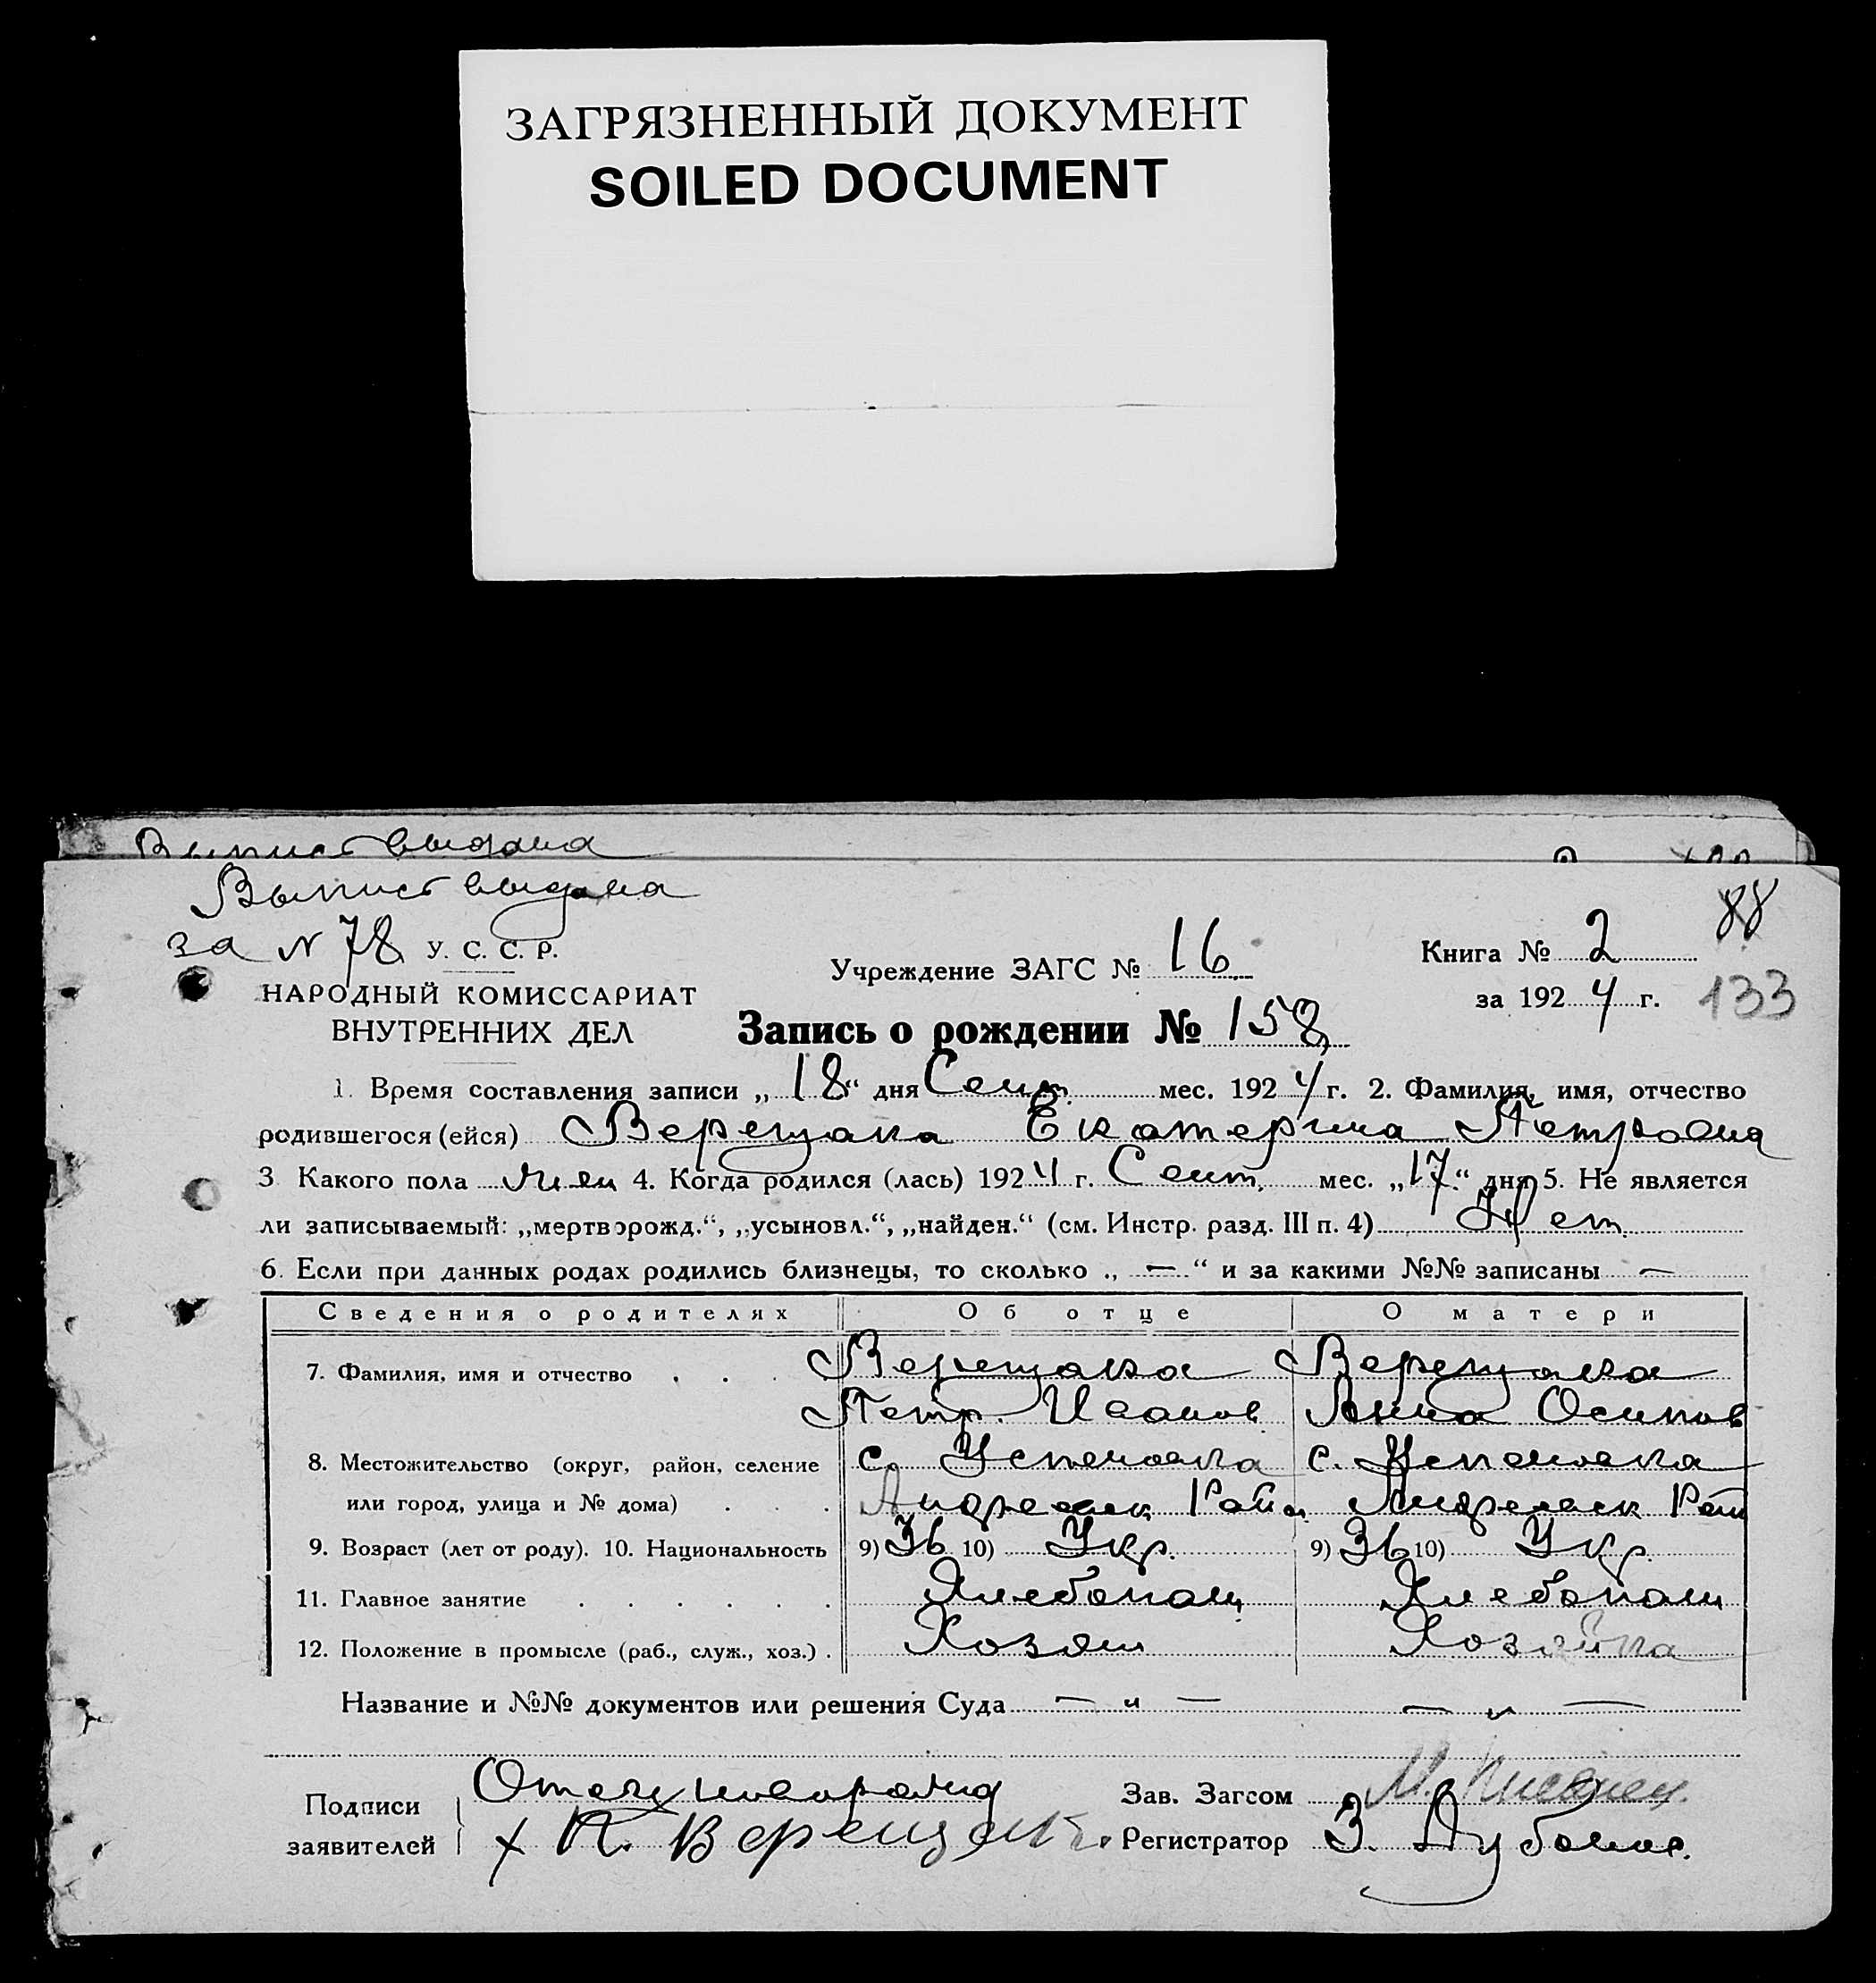 ЗАГРЯЗНЕННЫЙ ДОКУМЕНТ
SOILED DOCUMENT
Выпись выдана
Выпись выдана
за N 78 У. С. С. Р.
НАРОДНЫЙ КОМИССАРИАТ
ВНУТРЕННИХ ДЕЛ
Учреждение ЗАГС № 16
Книга № 2 88
за 1924 г. 133
Запись о рождении № 158
1. Время составления записи „18“ дня Сент. мес. 1924 г. 2. Фамилия, имя, отчество
родившегося (ейся) Верещака Екатерина Петровна
3. Какого пола жен 4. Когда родился (лась) 1924 г. Сент. мес. „17“ дня 5. Не является
ли записываемый: „мертворожд.“, „усыновл.“, „найден.“ (см. Инстр. разд. III п. 4) Нет
6. Если при данных родах родились близнецы, то сколько „ — “ и за какими №№ записаны —
Сведения о родителях Об отце О матери
7. Фамилия, имя и отчество . . . Верещака Верещака
Петр. Иванов Анна Осипов
8. Местожительство (округ, район, селение с. Успеновка с. Успеновка
или город, улица и № дома) . . . Андреевск Район Андреевск Рай
9. Возраст (лет от роду). 10. Национальность 9) 36 10) Укр. 9) 36 10) Укр.
11. Главное занятие . . . . . . Хлебопаш Хлебопаш
12. Положение в промысле (раб., служ., хоз.) . Хозяин Хозяйка
Название и №№ документов или решения Суда — „ — — „ —
Подписи
заявителей
Отец новорожд
х П. Верещак
Зав. Загсом
Регистратор З.